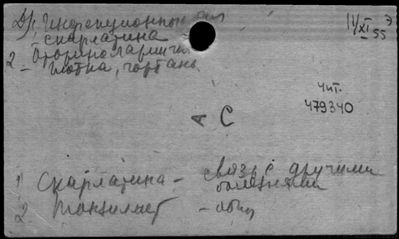 Др. Инфекционные
скарлатина
2 Оторинолариниг
глотка, гортань
11/XI 55 Э
Чит.
479340
А С
1 Скарлатина - связь с другими
болезнями
2 Тонзиллит - общ